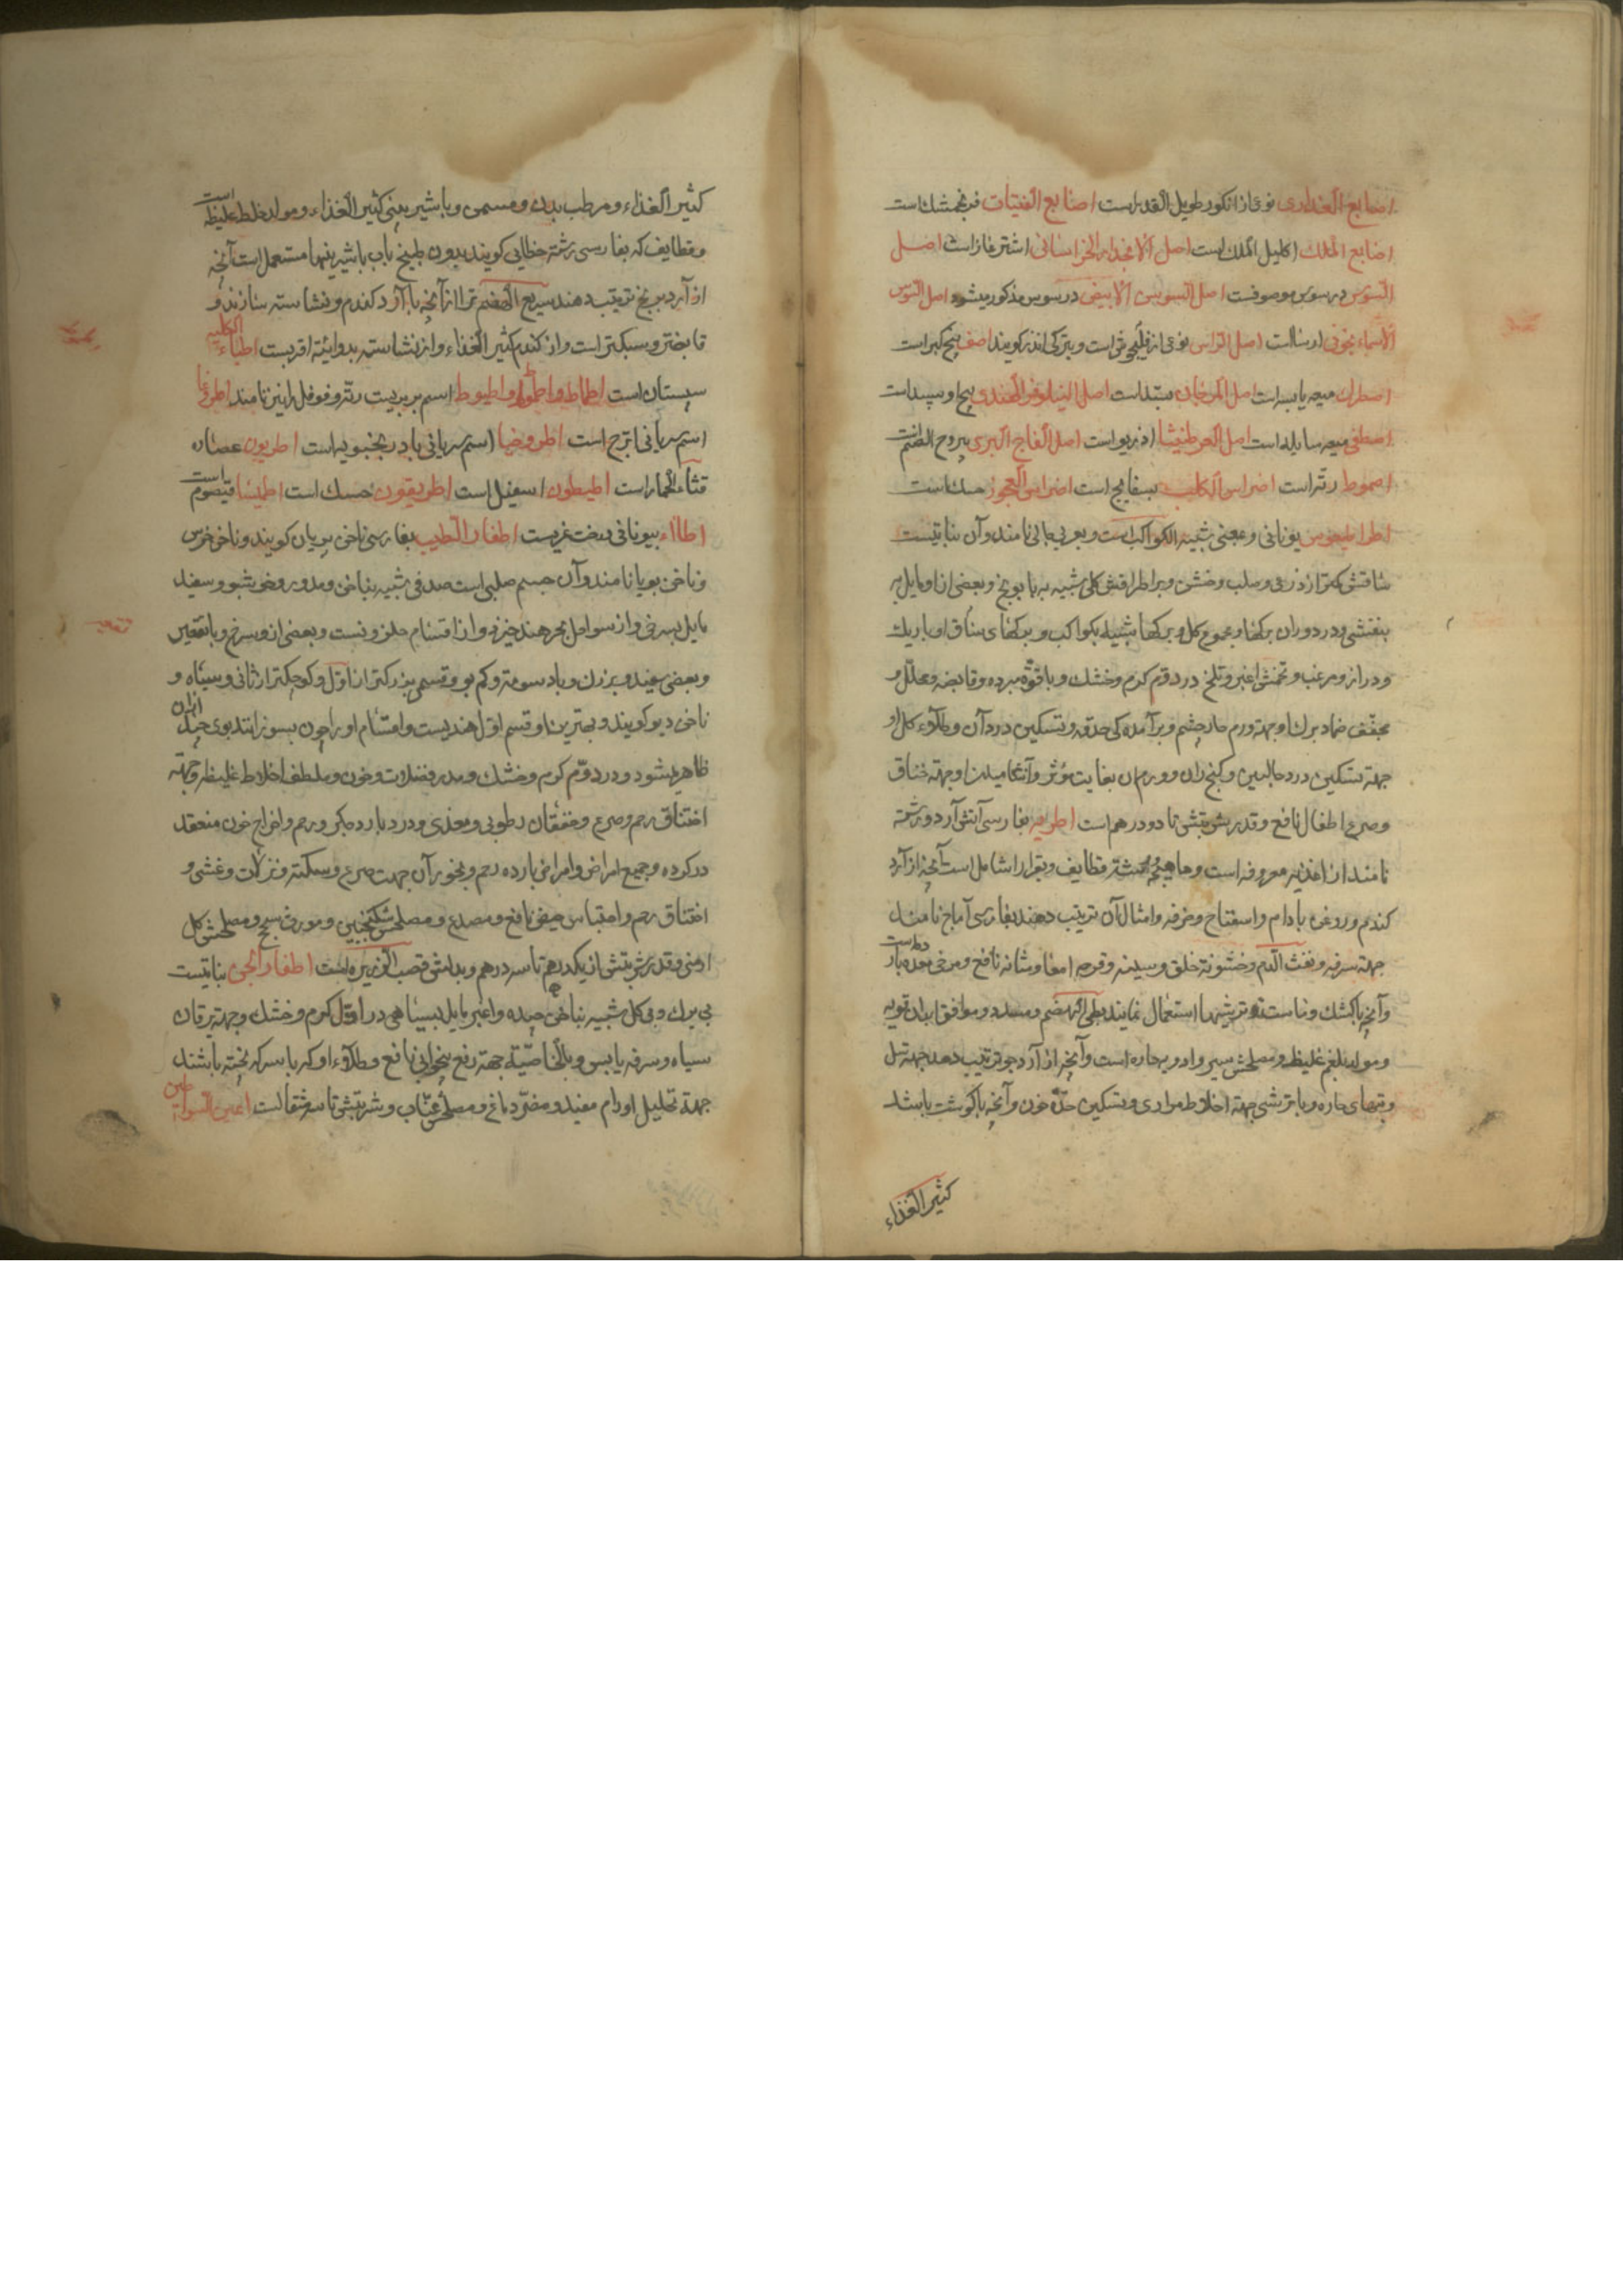 اصابع العذاری نوعی از انکور طویل القدر است اصابع الفتیات فرنجمشک است
اصابع الملک اکلیل الملک است اصل الانجدان الخراسانی اشترغاز است اصل
السوس در سوس موصوفست اصل السوسن الابیض در سوسن مذکور میشود اصل السوسن
الاسمانجونی ایرسا است اصل الراس نوعی از فلیجوش است وبترکی اندز کویند اصف بیخ کبر است
اصطرک میعه یابسه است اصل المرجان بسّد است اصل النیلوفر الهندی بیخ او بیبید است
اصطفی میعه سایله است اصل العرطنیثا اذربو است اصل اللفاح البری یبروح الصنم
اصموط رته است اضراس الکلب بسفایج است اضراس العجوز حسک است
اطراطیقوس یونانی و بمعنی شبیه الکواکب است و بعربی حالبی نامند و آن نباتیست
ساقش کمتر از ذرعی و صلب و خشن و بر اطرافش کلی شبیه به بابونج و بعضی از او مایل به
بنفشی و در دوران برکها و مجموع کل و برکها شبیه بکواکب و برکهای ساق او باریک
و دراز و مزغب و تخمش اغبر و تلخ در دوّم کرم و خشک و با قوّة مبرده و قابضه و محلّل و
مجفّف ضماد برک او جهة ورم حار چشم و برآمدکی حدقه و تسکین درد آن و طلاوء کل او
جهة تسکین درد حالبین و کنج ران و ورم آن بغایت مؤثر و آشامیدن او جهة خناق
و صرع اطفال نافع و قدر شربتش تا دو درهم است اطریه بفارسی آتش آرد و رشته
نامند از اغذیه معروفه است و ماهیچه و رشته و قطایف و بقرا را شامل است آنچه از آرد
کندم و روغن بادام و اسفناج و خرفه و امثال آن ترتیب دهند بفارسی آماج نامند
جهة سرفه و نفث الدم و خشونة حلق و سینه و قرحه امعا و مثانه نافع و مرخی معده بارد است
و آنچه با کشک و ماست و ترشیها استعمال نمایند بطی الهضم و مسدد و موافق ابدان قویه
و مولد بلغم غلیظ و مصلحش سیر و ادویه حاره است و آنچه از آرد جو ترتیب دهند جهة سل
و تبهای حاره و با ترشی جهة اخلاط مراری و تسکین حدّة خون و آنچه با کوشت باشد
کثیر الغذاء
کثیر الغذاء و مرطب بدن و مسمن و با شیر یعنی کثیر الغذاء و مولد خلط غلیظ است
و قطایف که بفارسی رشته خطایی کویند بدون طبخ بآب با شیرینیها مستعمل است آنچه
از آرد برنج ترتیب دهند سریع الهضم تر از آنچه با آرد کندم و نشاسته سازند و
قابضتر و سبکتر است و از کندم کثیر الغذاء و از نشاسته بدوائیّة اقربست اطباء الکلبه
سپستان است اطماط و اطموط و اطیوط اسم بربریست رته و فوفل را نیز نامند اطرغا
اسم سریانی اترج است اطروخیا اسم سریانی بادرنجبویه است اطریون عصاره
قثاء الحمار است اطیطون اسفیل است اطریقون حسک است اطیسا قیصوم است
اطااء بیونانی درخت غربست اظفار الطیب بفارسی ناخن پریان کویند و ناخن خرس
و ناخن بویا نامند و آن جسم صلبی است صدفی شبیه بناخن و مدور و خوشبو و سفید
مایل بسرخی و از سواحل بحر هند خیزد و از اقسام حلزونست و بعضی از و سرخ و با تقعیر
و بعضی سفید و بزرک و باد سومة و کم بو و قسمی بزرکتر از اوّل و کوچکتر از ثانی و سیاه و
ناخن دیو کویند و بهترین او قسم اوّل هندیست و اقسام او را چون بسوزانند بوی جند از آن
ظاهر میشود و در دوّم کرم و خشک و مدر فضلات و خون و ملطف اخلاط غلیظه و جهة
اختناق رحم و صرع و خفقان رطوبی و معدی و درد بارد جکر و رحم و اخراج خون منعقد
در کرده و جمیع امراض بارده رحم و بخور آن جهت صرع و سکته و نزلات و غشی و
اختناق رحم و احتباس حیض نافع و مصدع و مصلحش سکنجبین و مورث سحج و مصلحش کل
ارمنی و قدر شربتش از یکدرهم تا سه درهم و بدلش قصب الذریره است اظفار الجن نباتیست
بی برک و بی کل شبیه بناخن چیده و اغبر مایل بسیاهی در اوّل کرم و خشک و جهة یرقان
سیاه و سرفه یابس و بالخاصیّة جهة رفع بیخوابی نافع و طلاوء او که با سرکه پخته باشند
جهة تحلیل اورام مفید و مضرّ دماغ و مصلحش عنّاب و شربتش تا سه مثقالست اعین السراطین